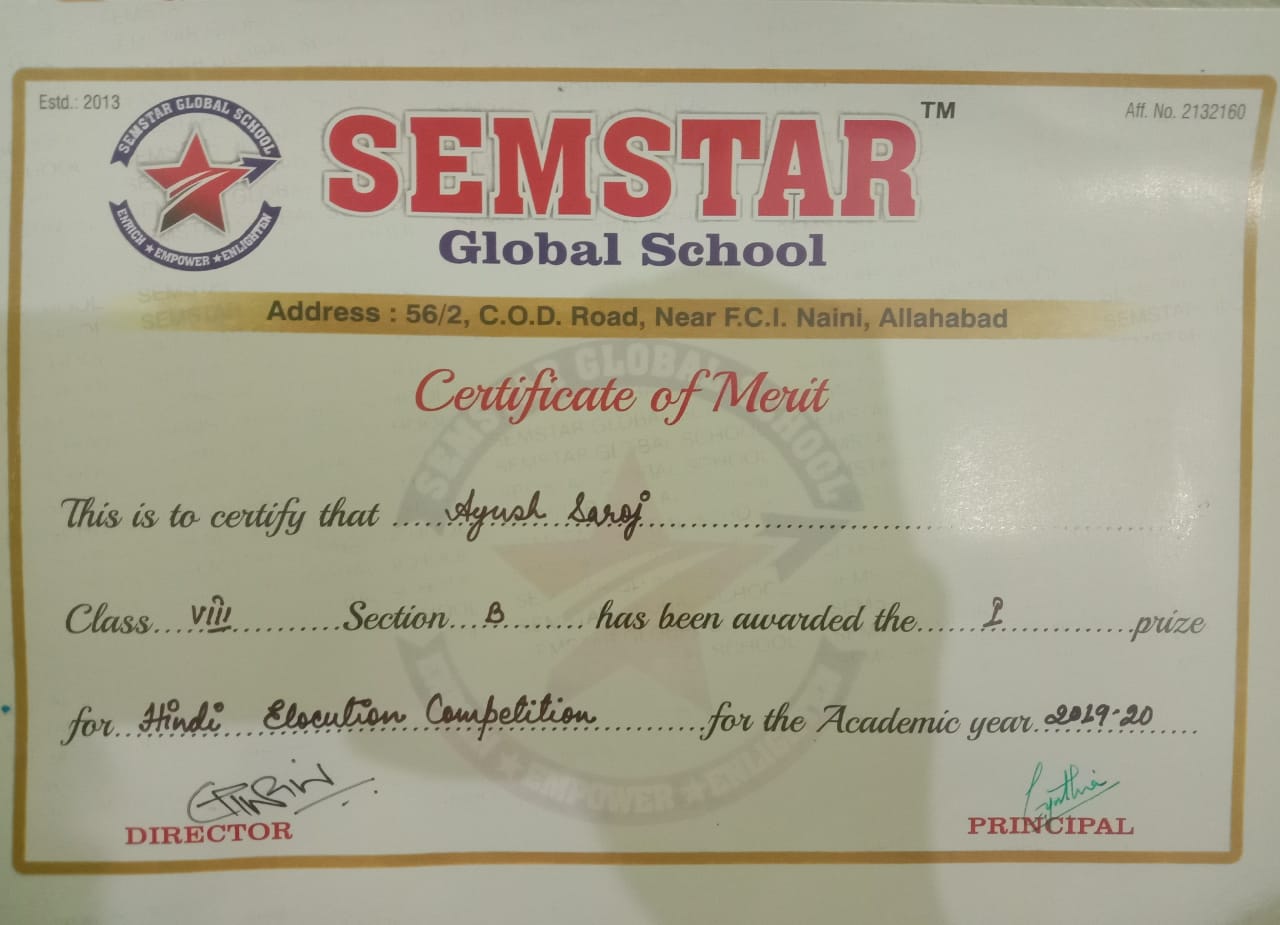 Estd.: 2013
Aff. No. 2132160
SEMSTAR GLOBAL SCHOOL
ENRICH ★ EMPOWER ★ ENLIGHTEN
SEMSTAR™
Global School
Address : 56/2, C.O.D. Road, Near F.C.I. Naini, Allahabad
Certificate of Merit
This is to certify that ..... Ayush Saroj ..........
Class.... VIII ..........Section... B ........ has been awarded the...... I ............prize
for... Hindi Elocution Competition ..........for the Academic year. 2019-20 ....
Cynthia
DIRECTOR
PRINCIPAL